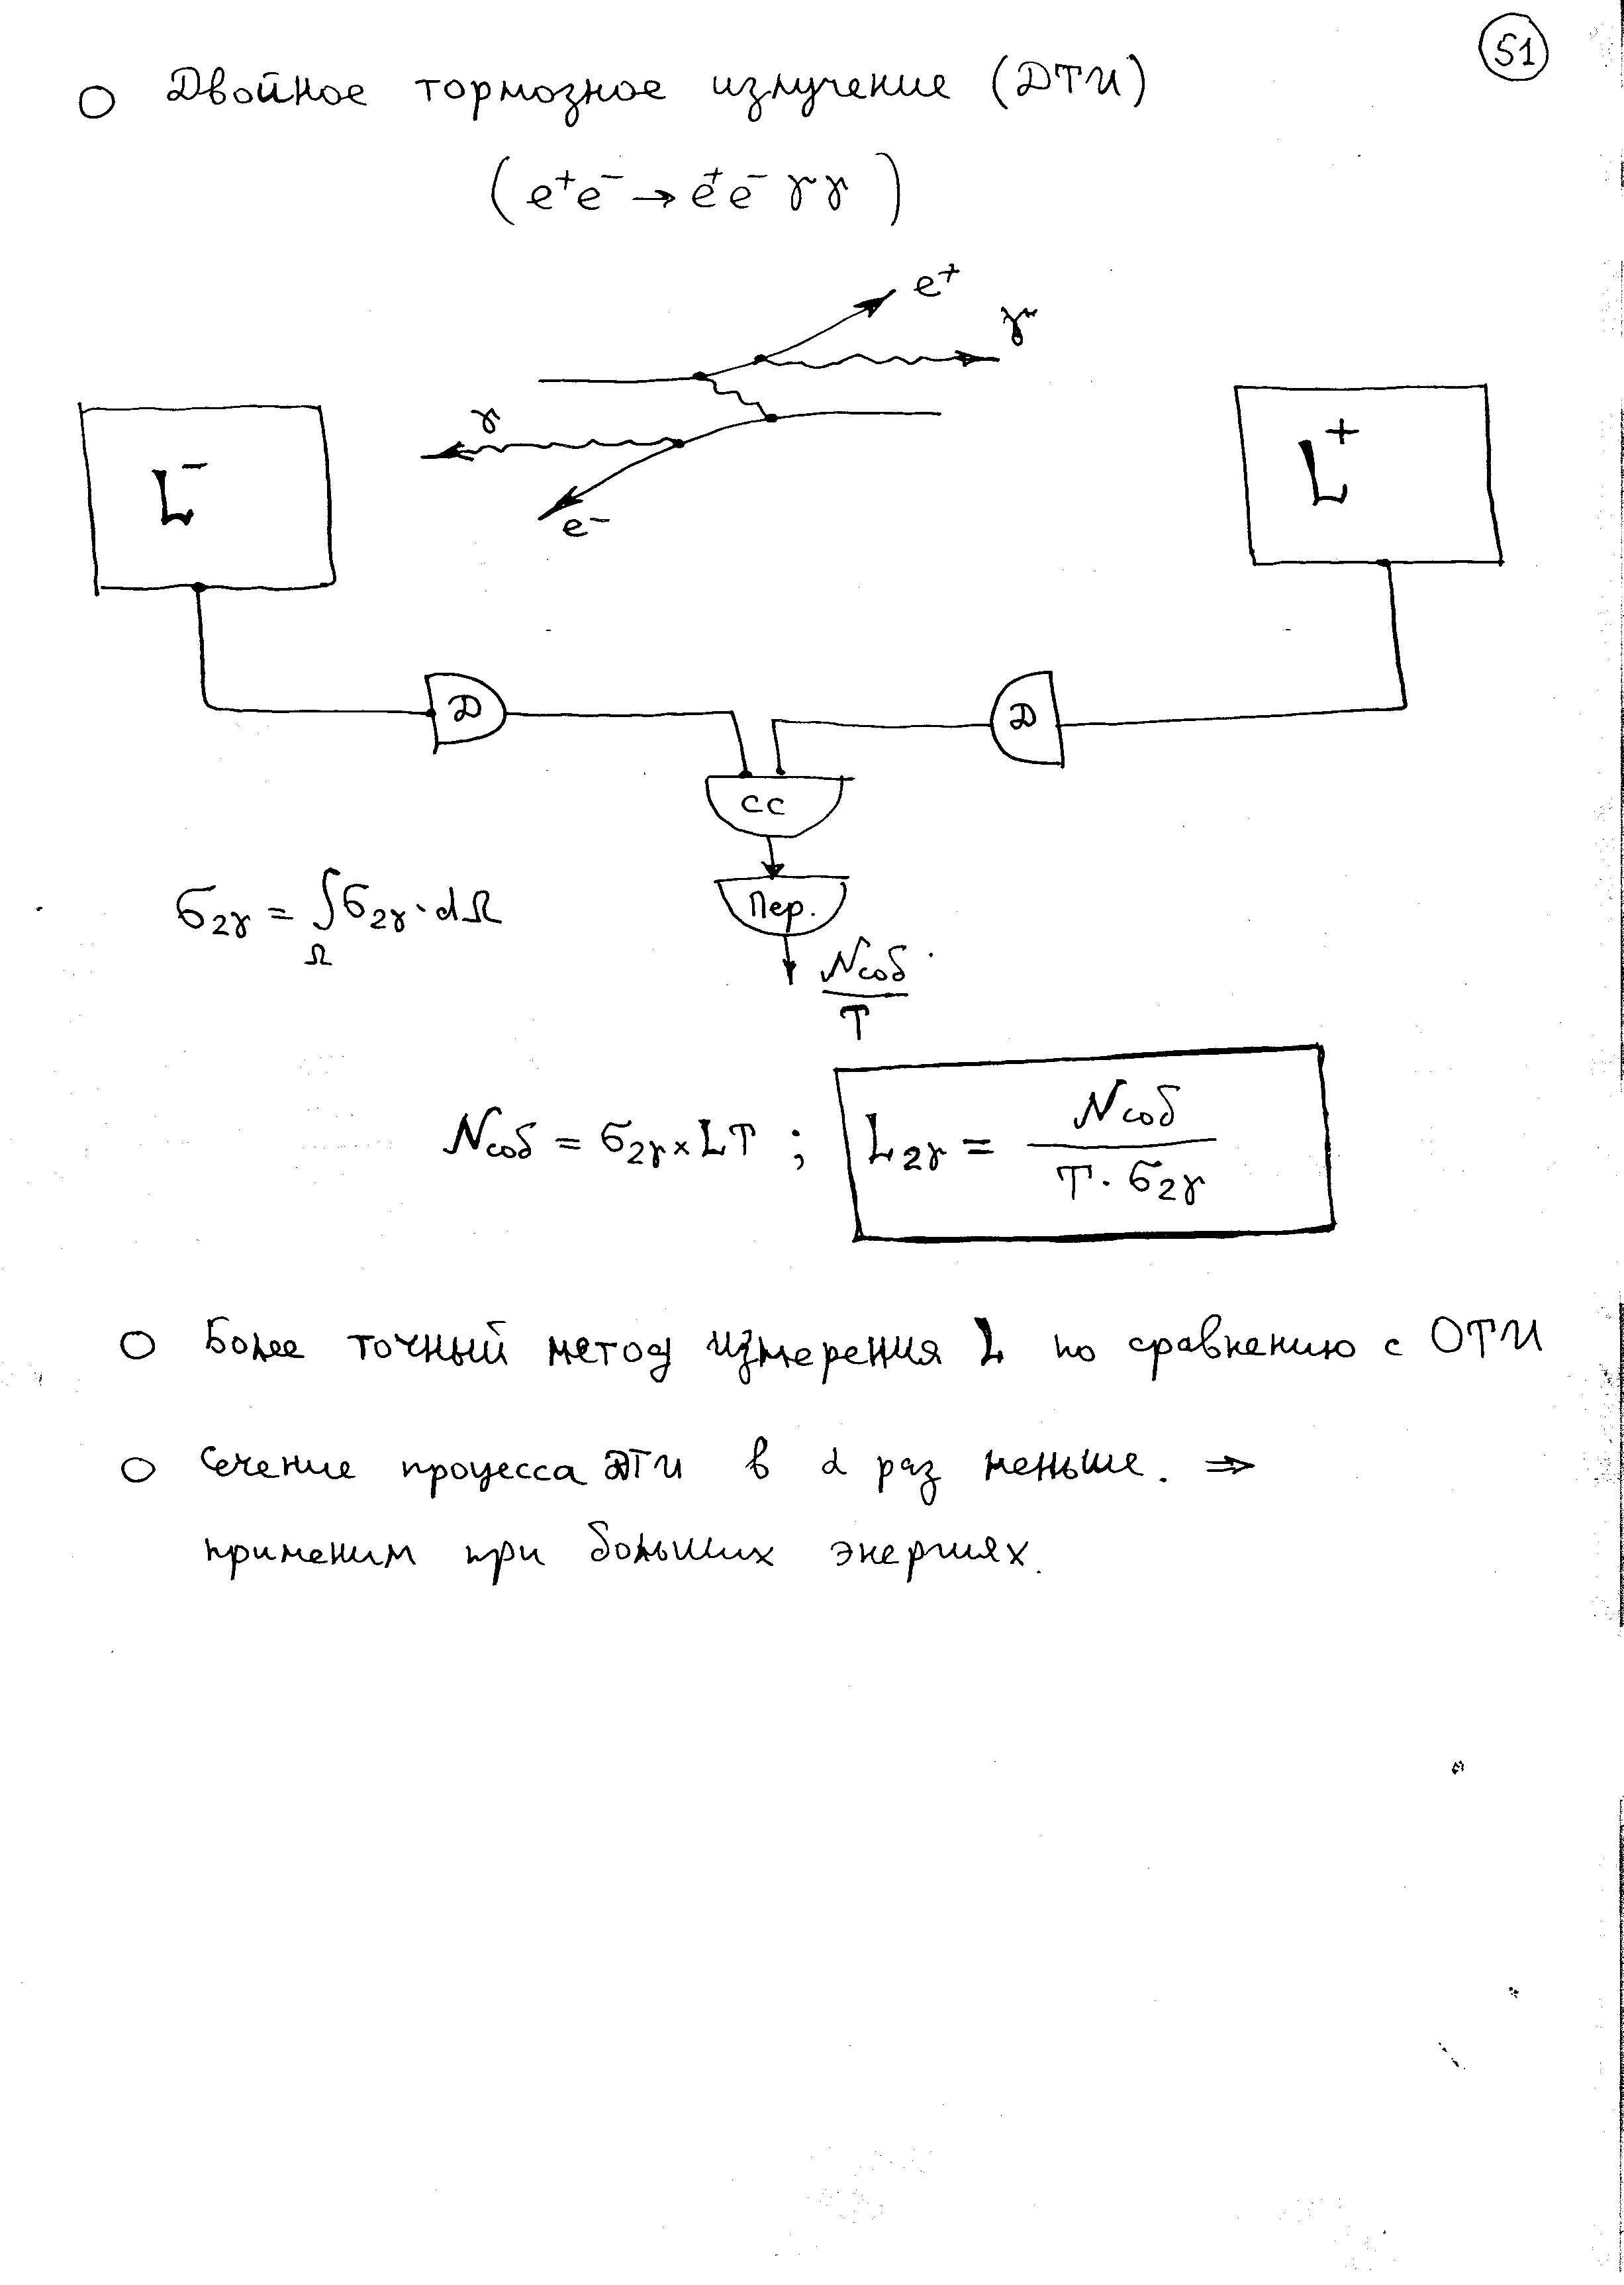 51
○ Двойное тормозное излучение (ДТИ)
(e⁺e⁻ → e⁺e⁻ γγ)
e⁺
γ
γ
L⁻
L⁺
e⁻
Д
Д
СС
σ₂γ = ∫_Ω σ₂γ · dΩ
Пер.
Nсоб / T
Nсоб = σ₂γ × LT ; L₂γ = Nсоб / (T · σ₂γ)
○ Более точный метод измерения L по сравнению с ОТИ
○ Сечение процесса ДТИ в α раз меньше. ⇒
применим при больших энергиях.